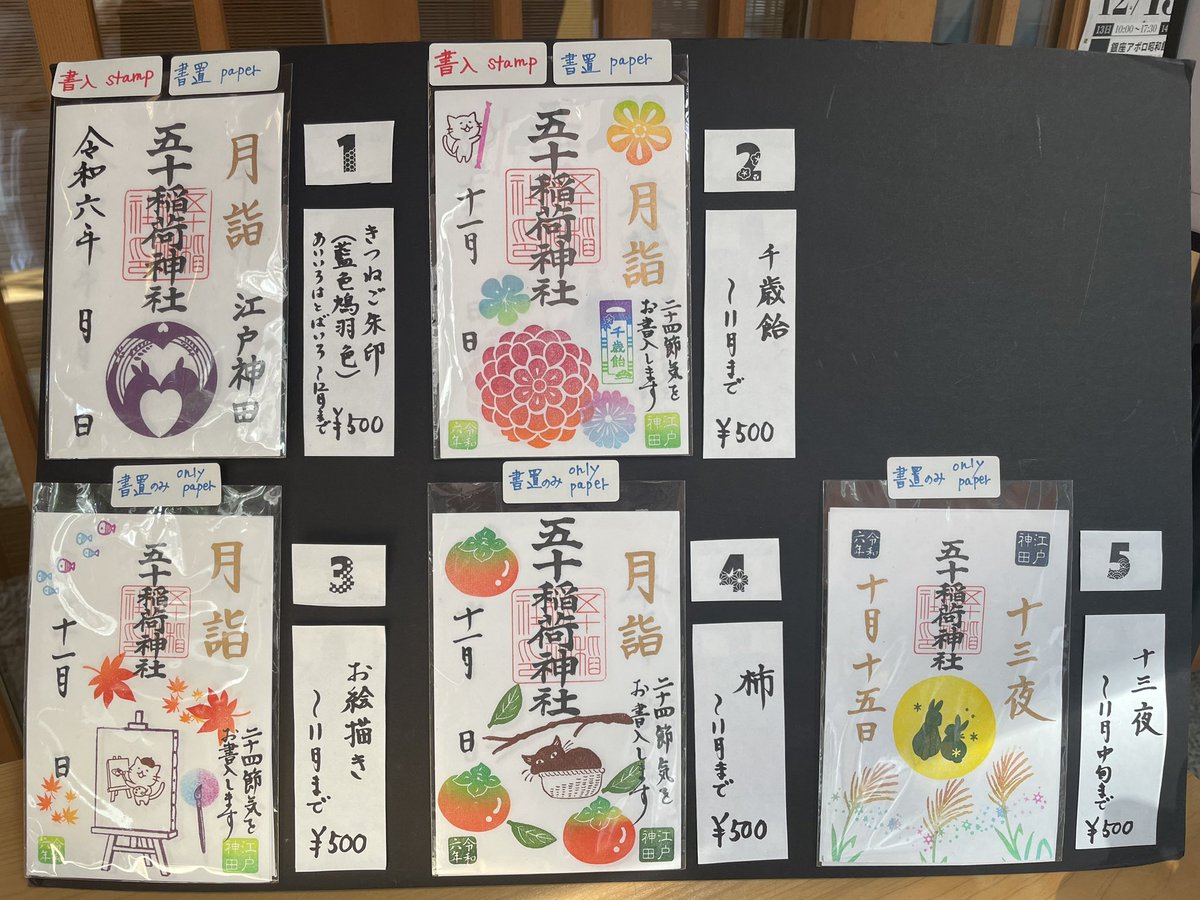 12/13
13日 10:00〜17:30 14
銀座アポロ昭和
書入 stamp
書置 paper
月詣
江戸神田
五十稲荷神社
令和六年 月 日
1
きつねご朱印
(藍色鳩羽色)
あいいろはとばいろ 〜12月まで
¥500
書入 stamp
書置 paper
月詣
五十稲荷神社
十一月 日
千歳飴
二十四節気を
お書入します
江戸神田
令和六年
2
千歳飴
〜11月まで
¥500
書置のみ only paper
月詣
五十稲荷神社
十一月 日
二十四節気を
お書入します
江戸神田
令和六年
3
お絵描き
〜11月まで
¥500
書置のみ only paper
月詣
五十稲荷神社
十一月 日
二十四節気を
お書入します
江戸神田
令和六年
4
柿
〜11月まで
¥500
書置のみ only paper
江戸神田
令和六年
十三夜
五十稲荷神社
十月十五日
5
十三夜
〜11月中旬まで
¥500